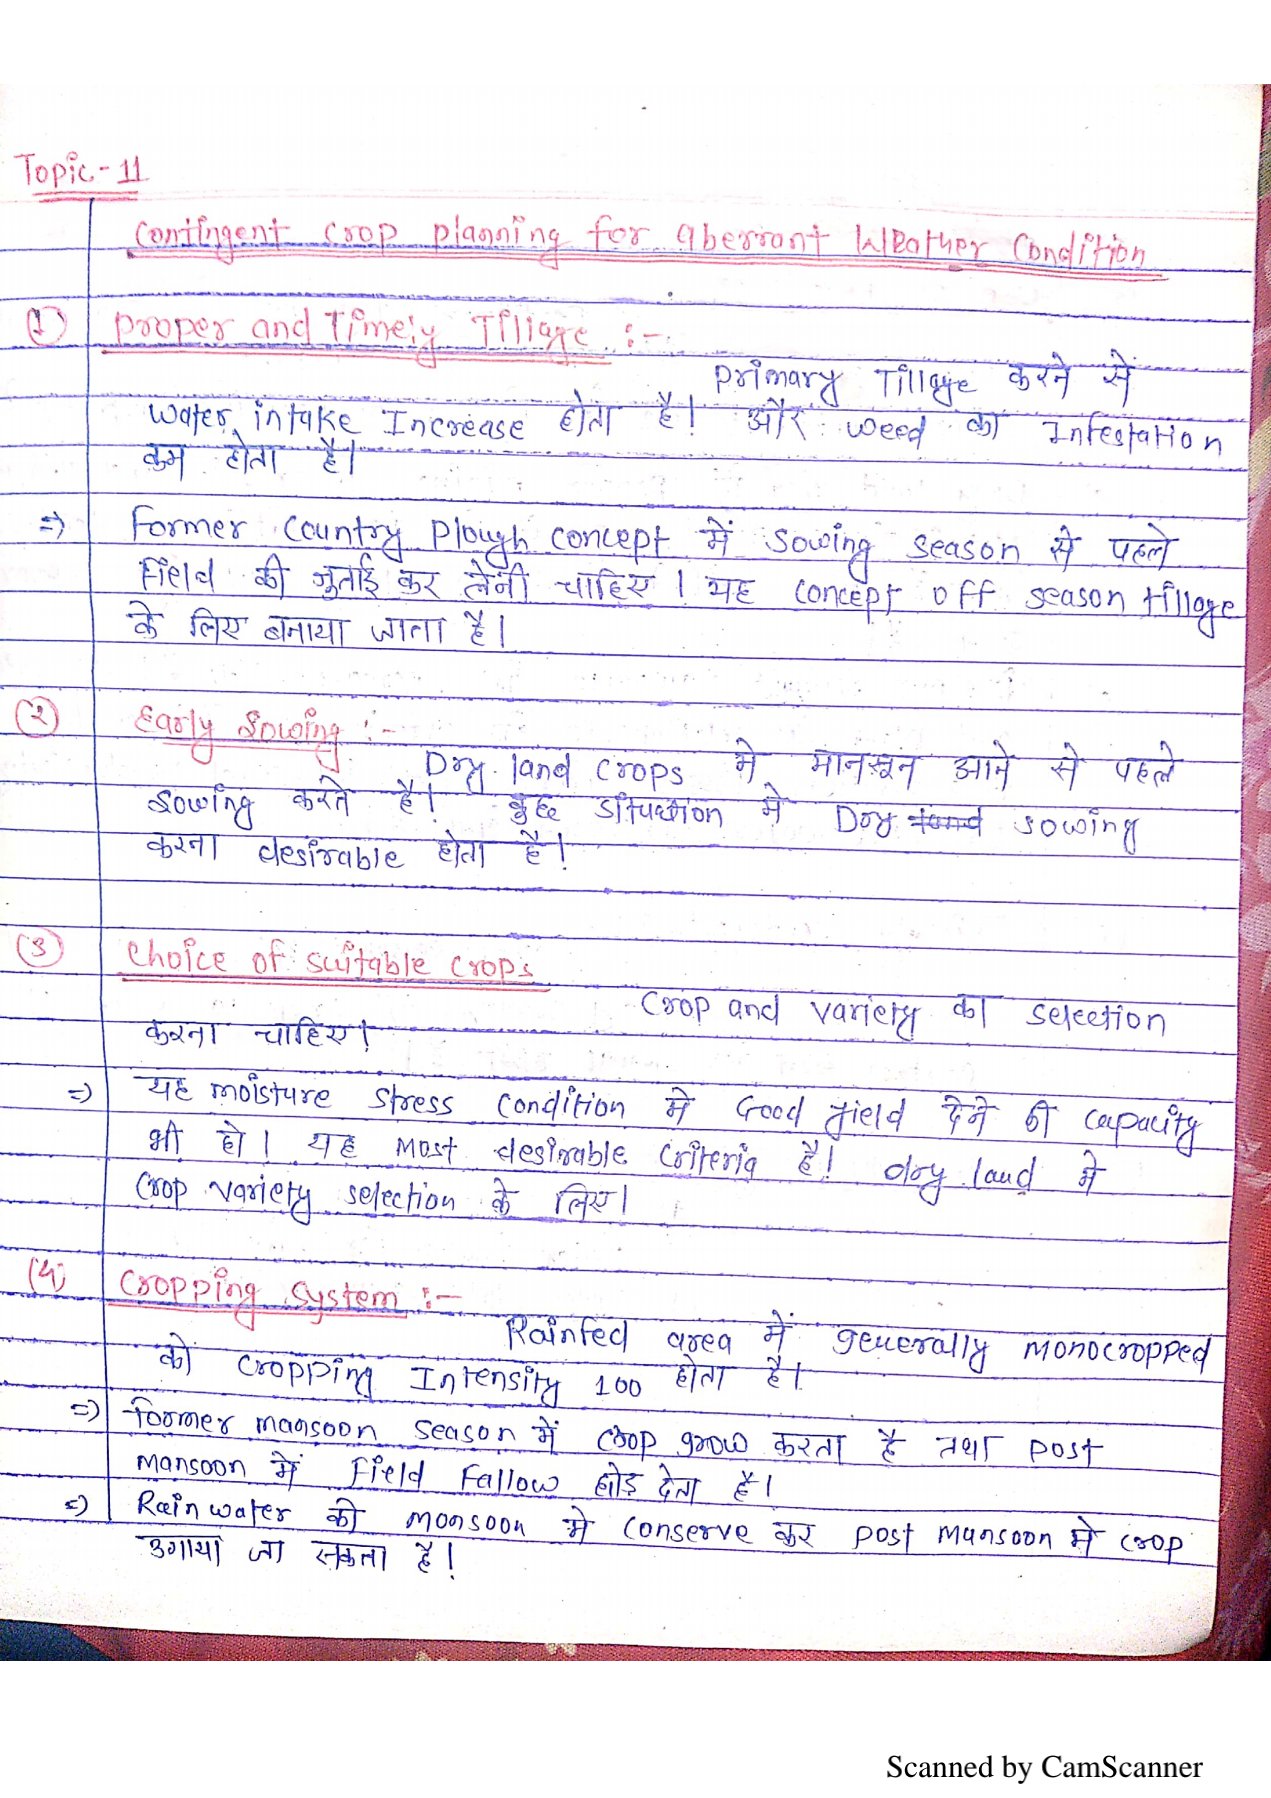 Topic-11
Contingent crop planning for aberrant Weather Condition
(1) Proper and Timely Tillage :-
Primary Tillage करने से
water intake Increase होता है। और weed का Infestation
कम होता है।
=) Former Country Plough concept में sowing season से पहले
Field की जुताई कर लेनी चाहिए। यह concept off season tillage
के लिए बनाया जाता है।
(2) Early Sowing :-
Dry land crops मे मानसून आने से पहले
Sowing करते है। कुछ situation मे Dry land sowing
करना desirable होता है।
(3) Choice of suitable crops
Crop and variety का selection
करना चाहिए।
=) यह moisture stress condition मे Good yield देने की capacity
भी हो। यह most desirable criteria है। dry land मे
Crop variety selection के लिए।
(4) Cropping System :-
Rainfed area में generally monocropped
को cropping Intensity 100 होता है।
=) Former mansoon season में crop grow करता है तथा post
mansoon में Field Fallow छोड़ देता है।
=) Rain water को monsoon मे conserve कर post mansoon मे crop
उगाया जा सकता है।
Scanned by CamScanner